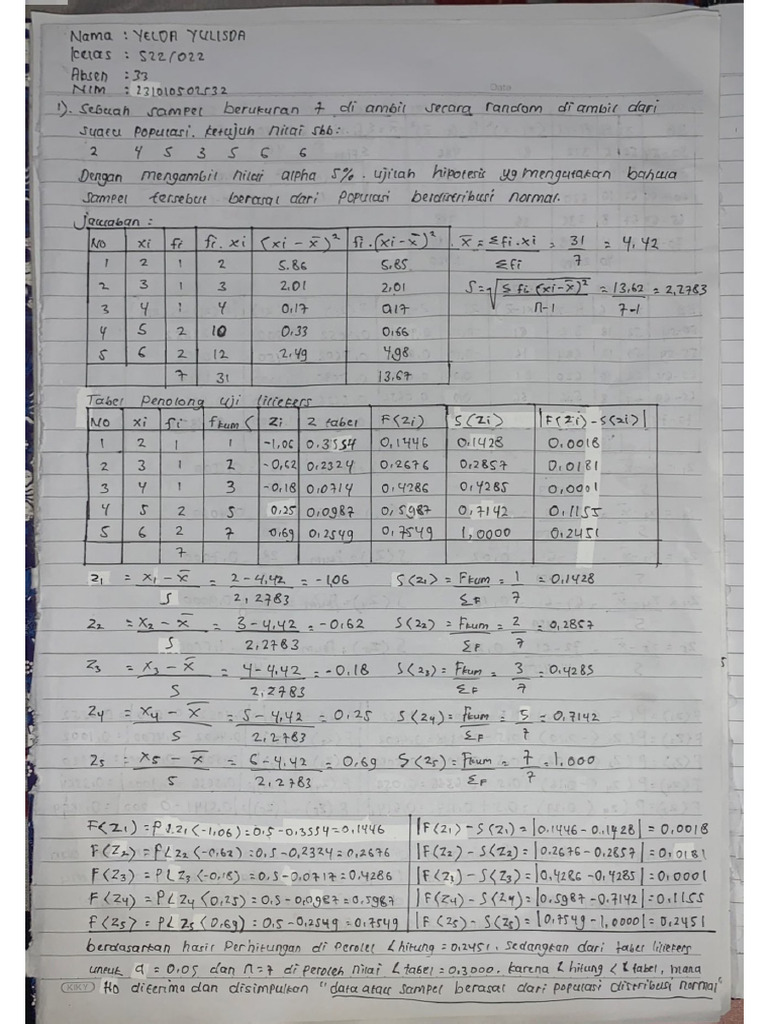 Nama : YELDA YULISDA
Kelas : S22/022
Absen : 33
NIM : 231010502532
Date
1). Sebuah sampel berukuran 7 di ambil secara random di ambil dari
suatu populasi. ketujuh nilai sbb:
2 4 5 3 5 6 6
Dengan mengambil nilai alpha 5%. ujilah hipotesis yg mengatakan bahwa
sampel tersebut berasal dari populasi berdistribusi normal.
Jawaban :
NO xi fi fi.xi (xi - x̄)² fi.(xi-x̄)²
1 2 1 2 5.86 5.85
2 3 1 3 2.01 2.01
3 4 1 4 0.17 0.17
4 5 2 10 0.33 0.66
5 6 2 12 2.49 4.98
7 31 13.67
x̄ = Σfi.xi / Σfi = 31/7 = 4,42
S = √ Σ fi (xi-x̄)² / n-1 = 13,62 / 7-1 = 2,2783
Tabel Penolong uji liliefers
NO xi fi fkum < Zi Z tabel F(Zi) S(Zi) |F(Zi) - S(Zi)|
1 2 1 1 -1,06 0,3554 0,1446 0,1428 0.0018
2 3 1 2 -0,62 0,2324 0,2676 0,2857 0,0181
3 4 1 3 -0,18 0,0714 0,4286 0,4285 0,0001
4 5 2 5 0,25 0,0987 0,5987 0,7142 0,1155
5 6 2 7 0,69 0,2549 0,7549 1,0000 0,2451
7
Z1 = x1 - x̄ / S = 2 - 4,42 / 2,2783 = -1,06 S(Z1) = Fkum / ΣF = 1/7 = 0,1428
Z2 = x2 - x̄ / S = 3 - 4,42 / 2,2783 = -0,62 S(Z2) = Fkum / ΣF = 2/7 = 0,2857
Z3 = x3 - x̄ / S = 4 - 4,42 / 2,2783 = -0.18 S(Z3) = Fkum / ΣF = 3/7 = 0.4285
Z4 = x4 - x̄ / S = 5 - 4,42 / 2,2783 = 0,25 S(Z4) = Fkum / ΣF = 5/7 = 0,7142
Z5 = x5 - x̄ / S = 6 - 4,42 / 2,2783 = 0,69 S(Z5) = Fkum / ΣF = 7/7 = 1,000
F(Z1) = P L Z1 (-1,06) = 0,5 - 0,3554 = 0,1446 |F(Z1) - S(Z1) = |0,1446 - 0,1428| = 0,0018
F(Z2) = P L Z2 (-0,62) = 0,5 - 0,2324 = 0,2676 |F(Z2) - S(Z2) = |0.2676 - 0,2857| = 0,0181
F(Z3) = P L Z3 (-0,18) = 0,5 - 0,0717 = 0,4286 |F(Z3) - S(Z3) = |0,4286 - 0,4285| = 0,0001
F(Z4) = P L Z4 (0,25) = 0,5 - 0,0987 = 0,5987 |F(Z4) - S(Z4) = |0,5987 - 0,7142| = 0,1155
F(Z5) = P L Z5 (0,69) = 0,5 - 0,2549 = 0,7549 |F(Z5) - S(Z5) = |0,7549 - 1,0000| = 0,2451
berdasarkan hasil Perhitungan di Peroleh L hitung = 0.2451. sedangkan dari tabel liliefers
untuk α = 0,05 dan n = 7 di peroleh nilai L tabel = 0,3000. karena L hitung < L tabel, maka
KIKY Ho diterima dan disimpulkan "data atau sampel berasal dari populasi distribusi normal"